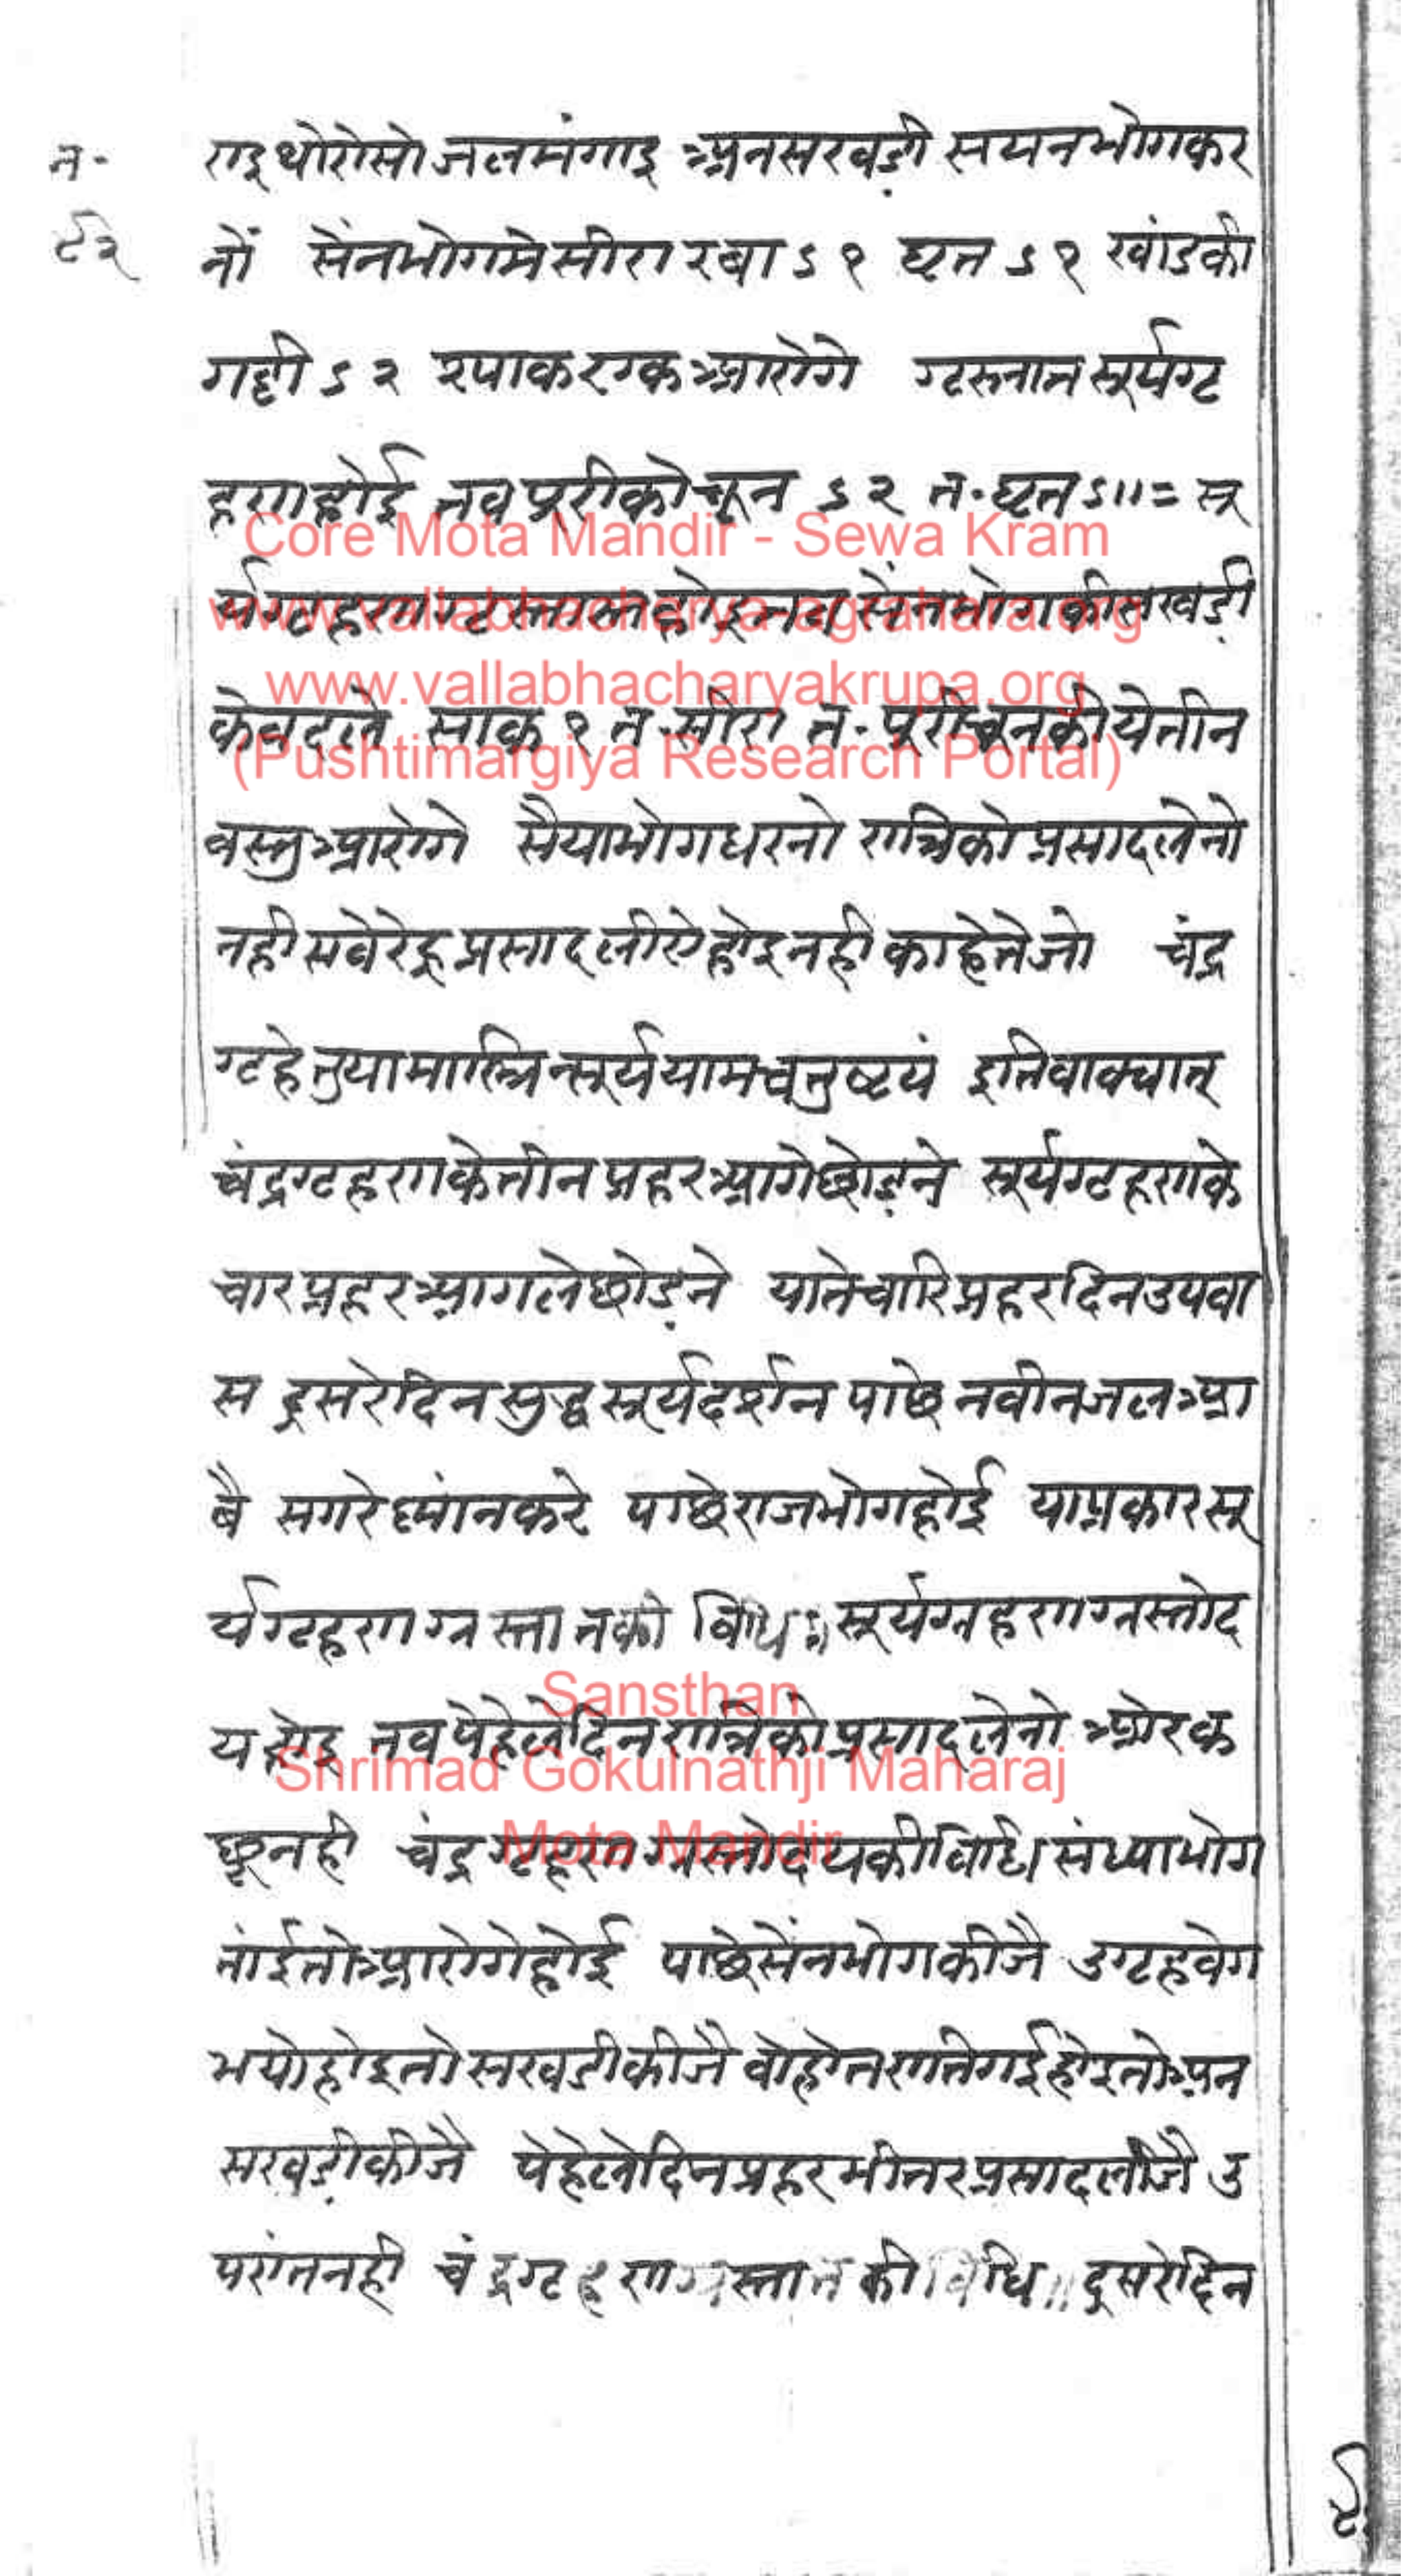 न॰
९२
राइ थोरोसो जलमंगाइ अनसखड़ी सयनभोगकर
नों सेंनभोगमे सीरा रवा ऽ१ घृत ऽ१ खांडकी
गद्दी ऽ२ २पाक रग्क आरोगे ग्रस्तास्त सूर्यग्र
हणहोई तब पूरीकोचून ऽ२ त॰ घृत ऽ॥= सू
र्यग्रहण ग्रस्तास्तहोइतब सेंनभोगकीसखड़ी
केबदले साक १ त॰ सीरा त॰ पूरीचूनकी येतीन
वस्तुआरोगे सैयाभोगधरनो रात्रिकोप्रसादलेनो
नहीसवेरेहू प्रसादलीयेहोइनही काहेतेजो चंद्र
ग्रहेतुयामास्त्रिन्सूर्ये यामचतुष्टयं इतिवाक्यात्
चंद्रग्रहणकेतीनप्रहर आगेछोड़ने सूर्यग्रहणके
चारप्रहर आगलेछोड़ने यातेचारिप्रहरदिनउपवा
स दूसरेदिनसुद्धसूर्यदर्शन पाछेनवीनजलआ
वै सगरेस्नांनकरे पाछेराजभोगहोई याप्रकारसू
र्यग्रहणग्रस्तास्तकी विधि॥ सूर्यग्रहणग्रस्तोद
यहोइ तबपेहेलेदिनरात्रिकोप्रसादलेनो ओरक
छूनही चंद्रग्रहणग्रस्तोदयकीविधि। संध्याभोग
तांईतोआरोगेहोई पाछेसेंनभोगकीजै उग्रहवेग
भयोहोइतोसखडीकीजै वोहोतरातिगईहोइतोअन
सखड़ीकीजै पेहेलेदिनप्रहरभीतरप्रसादलीजै उ
परांतनही चंद्रग्रहणग्रस्तास्तकीविधि॥ दूसरेदिन
Core Mota Mandir - Sewa Kram
www.vallabhacharya-agrahara.org
www.vallabhacharyakrupa.org
(Pushtimargiya Research Portal)
Sansthan
Shrimad Gokulnathji Maharaj
Mota Mandir